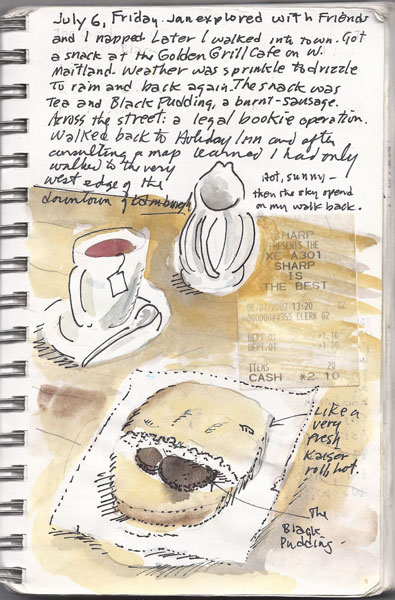 July 6, Friday. Jan explored with Friends
and I napped Later I walked into town. Got
a snack at the Golden Grill Cafe on W.
Maitland. Weather was sprinkle to drizzle
to rain and back again. The snack was
Tea and Black Pudding, a burnt-sausage.
Across the street: a legal bookie operation.
Walked back to Holiday Inn and after
consulting a map learned I had only
walked to the very
west edge of the
downtown of Edinburgh
Hot, sunny –
then the sky opend
on my walk back.
SHARP
PRESENTS THE
XE A301
SHARP
IS
THE BEST
06/07/2007 13:20 02
CLERK 02
DEPT.01 *1.10
DEPT.01
ITEMS
CASH *2.10
Like a
very
fresh
Kaiser
roll hot.
The
Black
Pudding.